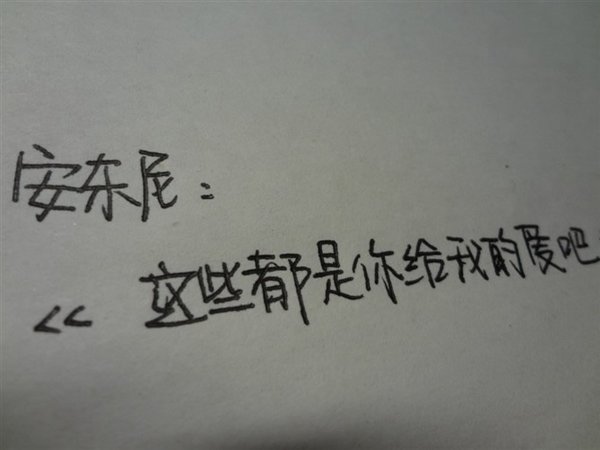 安东尼：
<< 这些都是你给我的爱吧